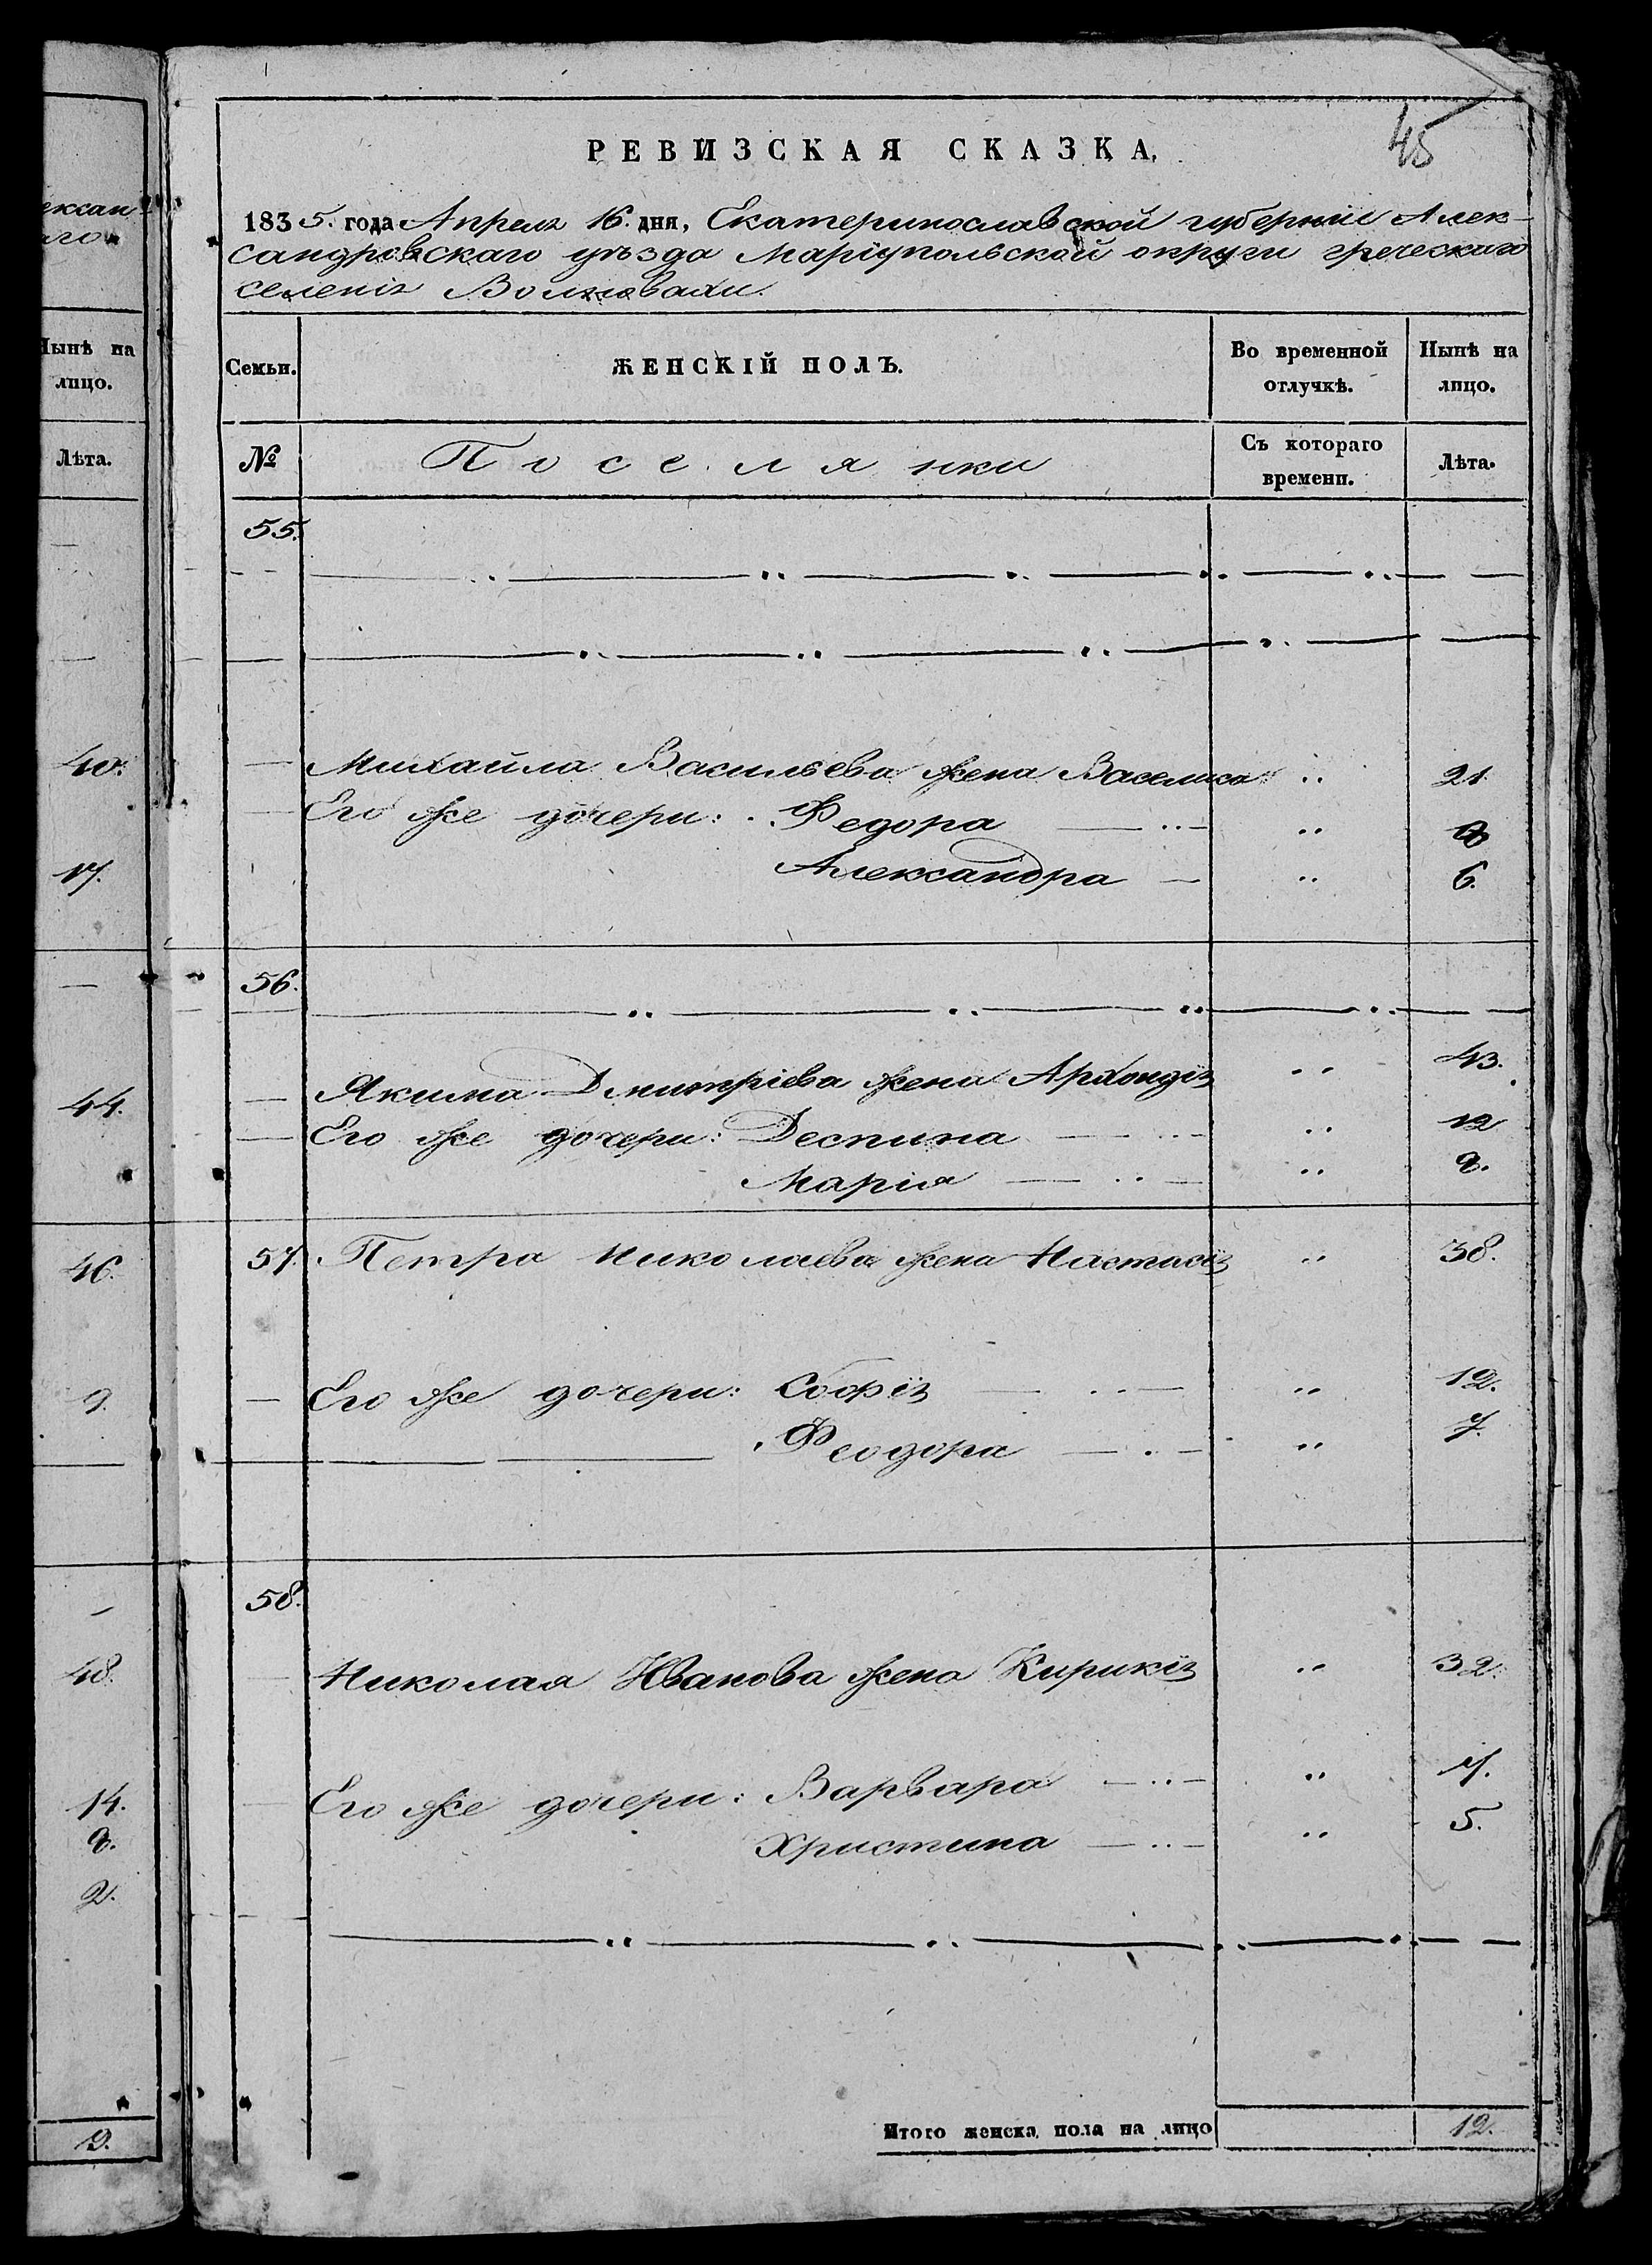 45
РЕВИЗСКАЯ СКАЗКА,
1835. года Апреля 16. дня, Екатеринославской губерніи Алек-
сандровскаго уѣзда Маріупольской округи греческаго
селенія Волновахи.
Семьи.
ЖЕНСКІЙ ПОЛЪ.
Во временной отлучкѣ.
Нынѣ на лицо.
№
Поселянки
Съ котораго времени.
Лѣта.
55.
Михайла Васильева жена Васелиса 21.
Его же дочери: Федора 8
Александра 6.
56.
Якима Дмитріева жена Архондія 43.
Его же дочери: Деспина 12
Марія 8.
57. Петра Николаева жена Настасія 38.
Его же дочери: Софія 12.
Феодора 7.
58.
Николая Иванова жена Кирикія 32.
Его же дочери: Варвара 7.
Христина 5.
Итого женска пола на лицо 12.
Нынѣ на
лицо.
Лѣта.
40.
17.
44.
46.
9.
48.
14.
8.
2.
9.